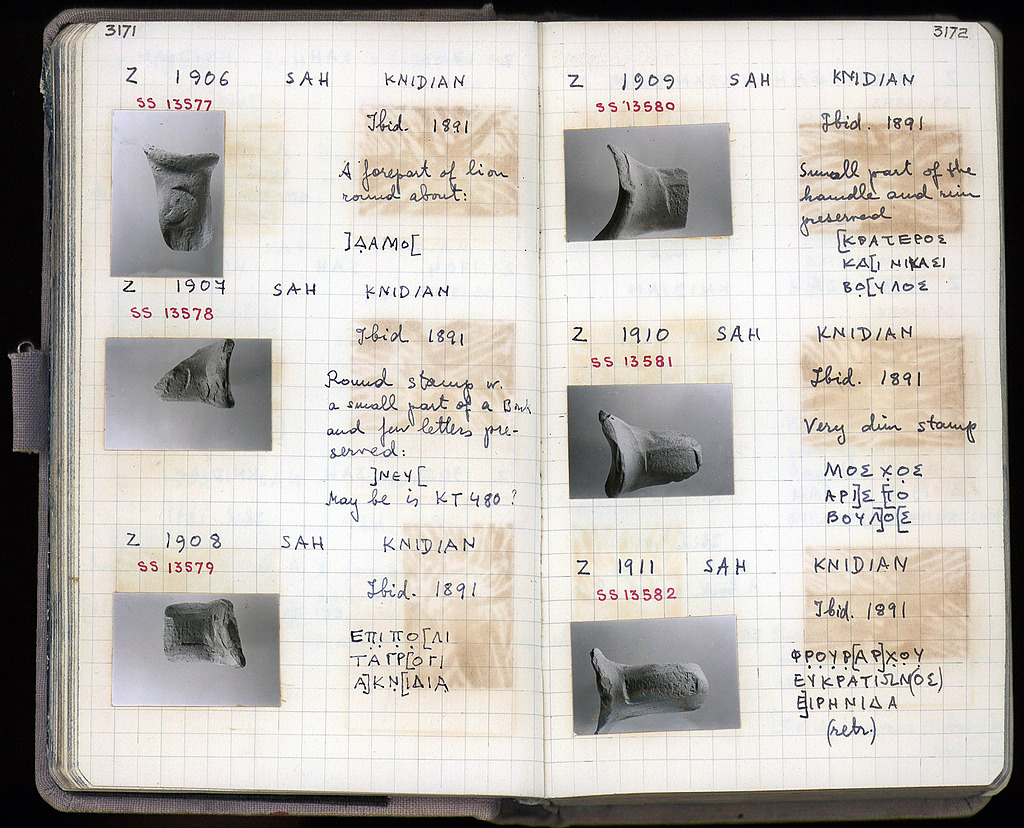 3171
Z 1906 SAH KNIDIAN
SS 13577
Ibid. 1891
A forepart of lion
round about:
]ΔΑΜΟ[
Z 1907 SAH KNIDIAN
SS 13578
Ibid 1891
Round stamp w.
a small part of a
and few letters pre-
served:
]ΝΕΥ[
May be is KT 480?
Z 1908 SAH KNIDIAN
SS 13579
Ibid. 1891
ΕΠΙ ΠΟ[ΛΙ
ΤΑ ΓΡ[ΟΓΙ
Α]ΚΝ[ΙΔΙΑ
3172
Z 1909 SAH KNIDIAN
SS 13580
Ibid. 1891
Small part of the
handle and rim
preserved
[ΚΡΑΤΕΡΟΣ
ΚΑ[Ι ΝΙΚΑΣΙ
ΒΟ[ΥΛΟΣ
Z 1910 SAH KNIDIAN
SS 13581
Ibid. 1891
Very dim stamp
ΜΟΣΧΟΣ
ΑΡΙ]Σ[ΤΟ
ΒΟΥΛ]Ο[Σ
Z 1911 SAH KNIDIAN
SS 13582
Ibid. 1891
ΦΡΟΥΡ[ΑΡ]ΧΟΥ
ΕΥΚΡΑΤΙΩΝ(ΟΣ)
Ε]ΙΡΗΝΙΔΑ
(retr.)